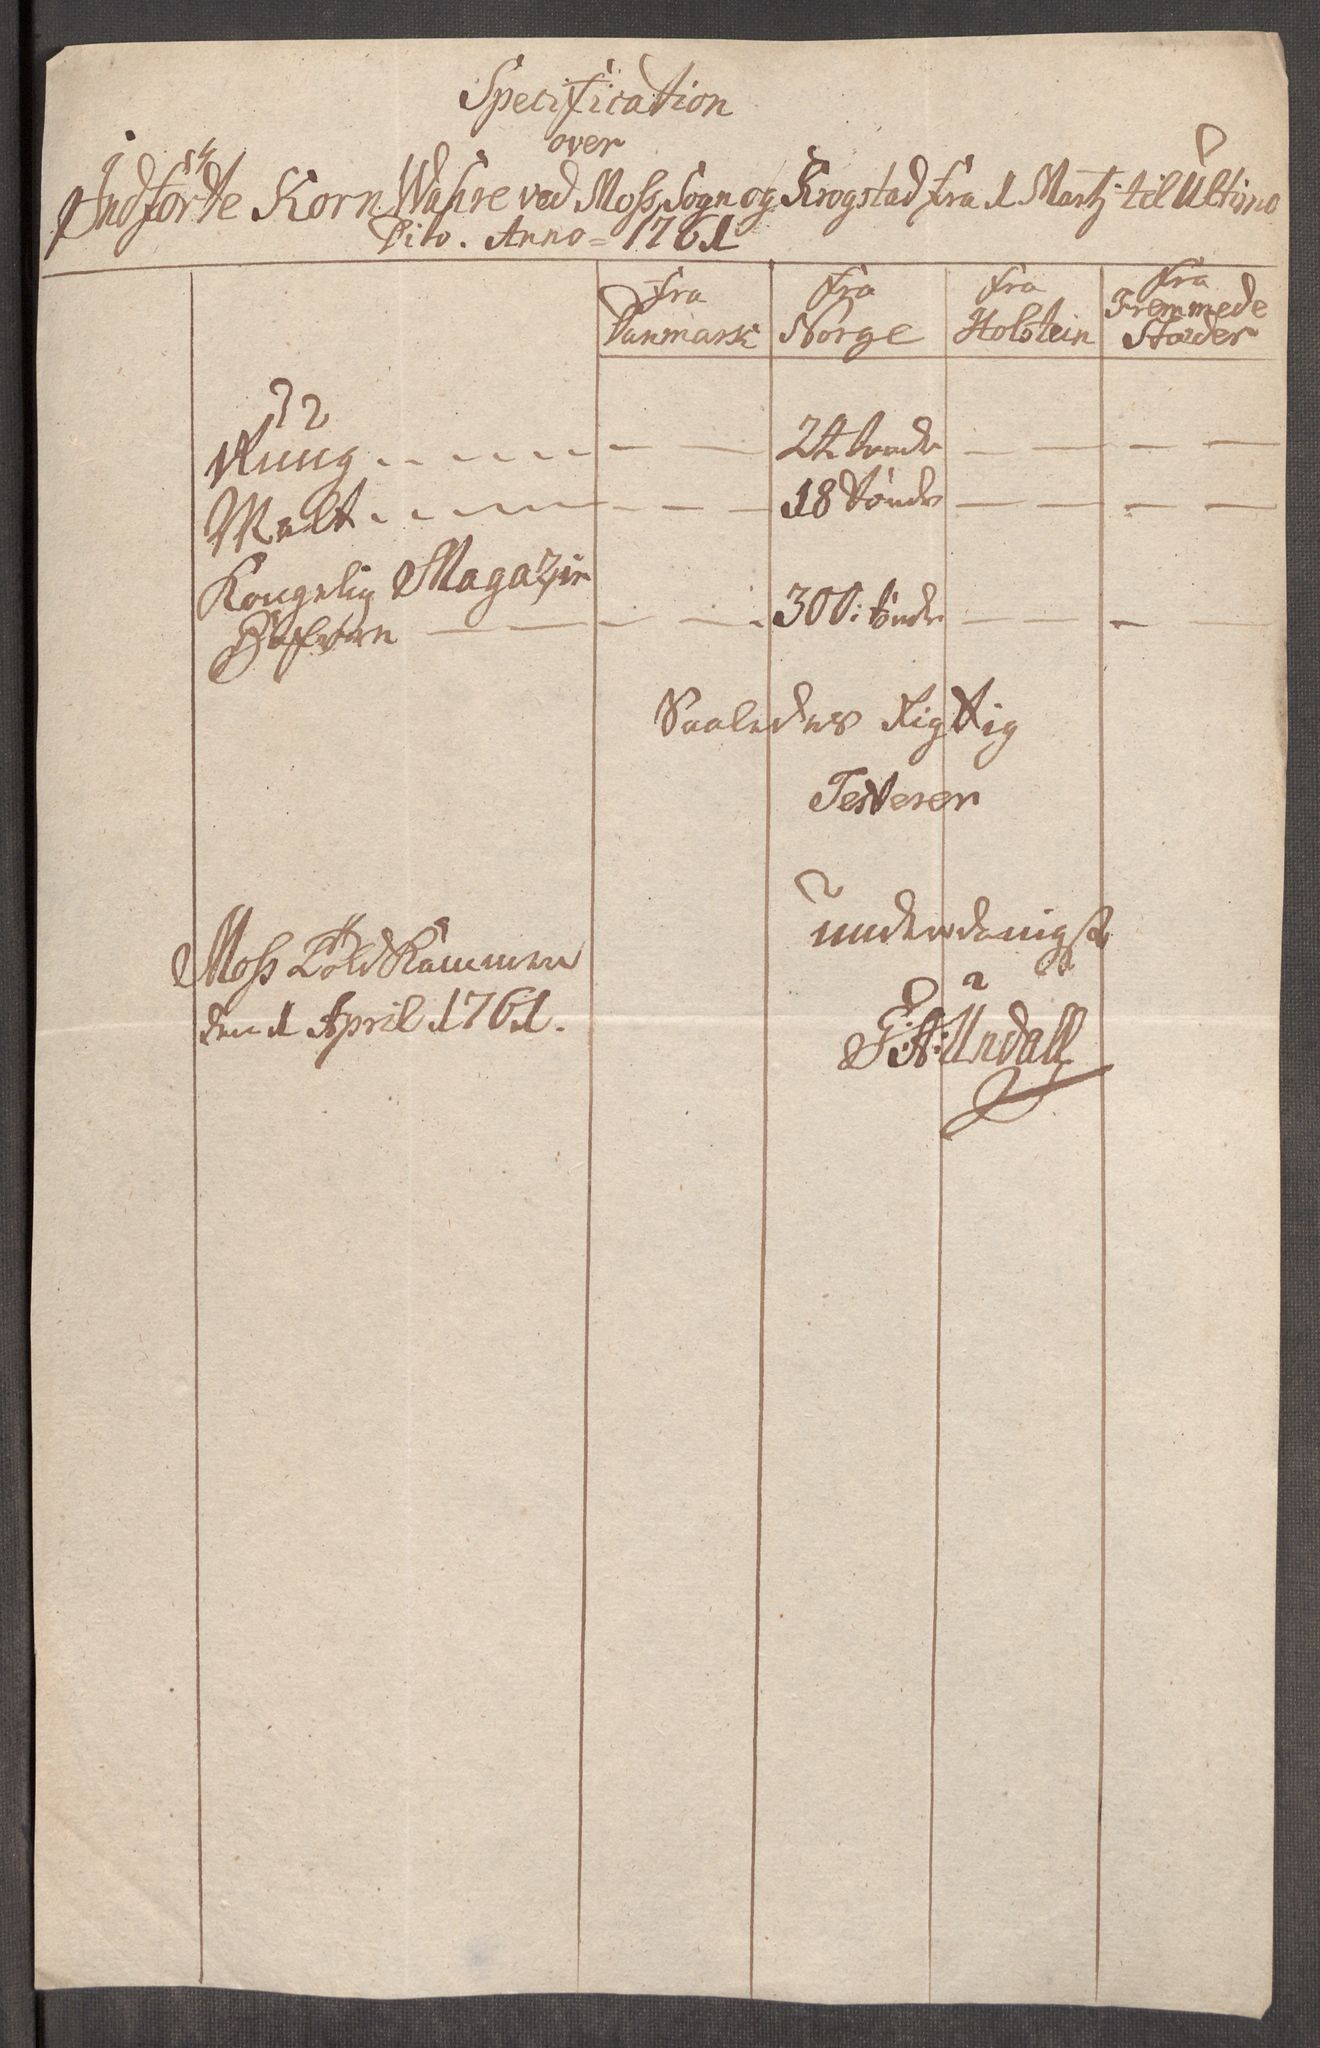 Specification
over
Indførte Korn Wahre ved Moss, Sogn og Krogstad fra 1 Martj til Ultimo
Dito. Anno = 1761
fra Danmark
fra Norge
fra Holstein
fra Fremmede Stæder
Rüüg - - - - - - - 24 tønde - - - -
Malt - - - - - - - 18 tønde - - - -
Kongelig Magazin
Hafvern - - - - 300: tønde - - - -
Saaledes rigtig
Testerer
underdanigst
Moss Told Kammer
den 1 April 1761.
G: A: Undall